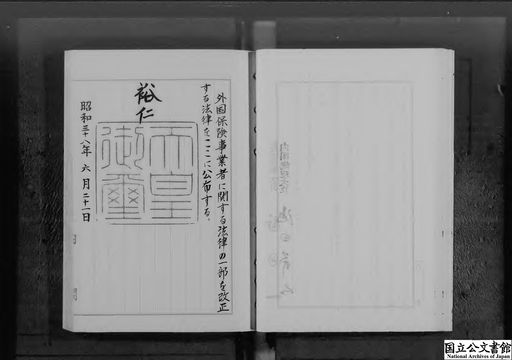 外国保険事業者に関する法律の一部を改正
する法律をここに公布する。
裕仁
天皇
御璽
昭和三十八年 六月二十一日
国立公文書館
National Archives of Japan